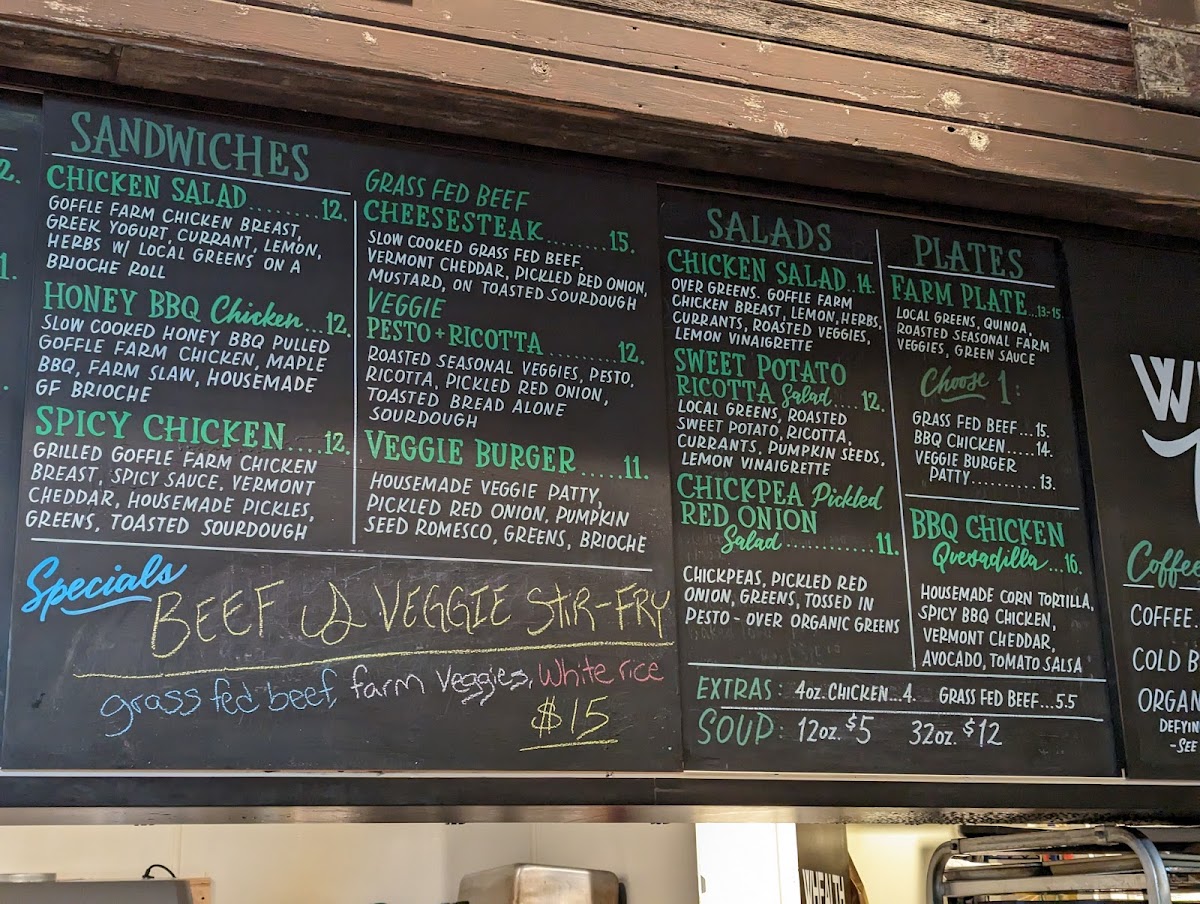 2.
1.
SANDWICHES
CHICKEN SALAD.........12.
GOFFLE FARM CHICKEN BREAST,
GREEK YOGURT, CURRANT, LEMON,
HERBS W/ LOCAL GREENS ON A
BRIOCHE ROLL
HONEY BBQ Chicken...12.
SLOW COOKED HONEY BBQ PULLED
GOFFLE FARM CHICKEN, MAPLE
BBQ, FARM SLAW, HOUSEMADE
GF BRIOCHE
SPICY CHICKEN.....12.
GRILLED GOFFLE FARM CHICKEN
BREAST, SPICY SAUCE, VERMONT
CHEDDAR, HOUSEMADE PICKLES,
GREENS, TOASTED SOURDOUGH
GRASS FED BEEF
CHEESESTEAK........15.
SLOW COOKED GRASS FED BEEF,
VERMONT CHEDDAR, PICKLED RED ONION,
MUSTARD, ON TOASTED SOURDOUGH
VEGGIE
PESTO+RICOTTA.........12.
ROASTED SEASONAL VEGGIES, PESTO,
RICOTTA, PICKLED RED ONION,
TOASTED BREAD ALONE
SOURDOUGH
VEGGIE BURGER.....11.
HOUSEMADE VEGGIE PATTY,
PICKLED RED ONION, PUMPKIN
SEED ROMESCO, GREENS, BRIOCHE
Specials
BEEF & VEGGIE Stir-FRY
grass fed beef, farm Veggies, White rice
$15
SALADS
CHICKEN SALAD..14.
OVER GREENS. GOFFLE FARM
CHICKEN BREAST, LEMON, HERBS,
CURRANTS, ROASTED VEGGIES,
LEMON VINAIGRETTE
SWEET POTATO
RICOTTA Salad....12.
LOCAL GREENS, ROASTED
SWEET POTATO, RICOTTA,
CURRANTS, PUMPKIN SEEDS,
LEMON VINAIGRETTE
CHICKPEA Pickled
RED ONION
Salad............11.
CHICKPEAS, PICKLED RED
ONION, GREENS, TOSSED IN
PESTO - OVER ORGANIC GREENS
PLATES
FARM PLATE...13-15.
LOCAL GREENS, QUINOA,
ROASTED SEASONAL FARM
VEGGIES, GREEN SAUCE
Choose 1:
GRASS FED BEEF...15.
BBQ CHICKEN.....14.
VEGGIE BURGER
PATTY...........13.
BBQ CHICKEN
Quesadilla...16.
HOUSEMADE CORN TORTILLA,
SPICY BBQ CHICKEN,
VERMONT CHEDDAR,
AVOCADO, TOMATO SALSA
EXTRAS: 4oz. CHICKEN...4. GRASS FED BEEF...5.5
SOUP: 12oz. $5 32oz. $12
W
Coffee
COFFEE.
COLD B
ORGAN
DEFYIN
-SEE
WHEALTH